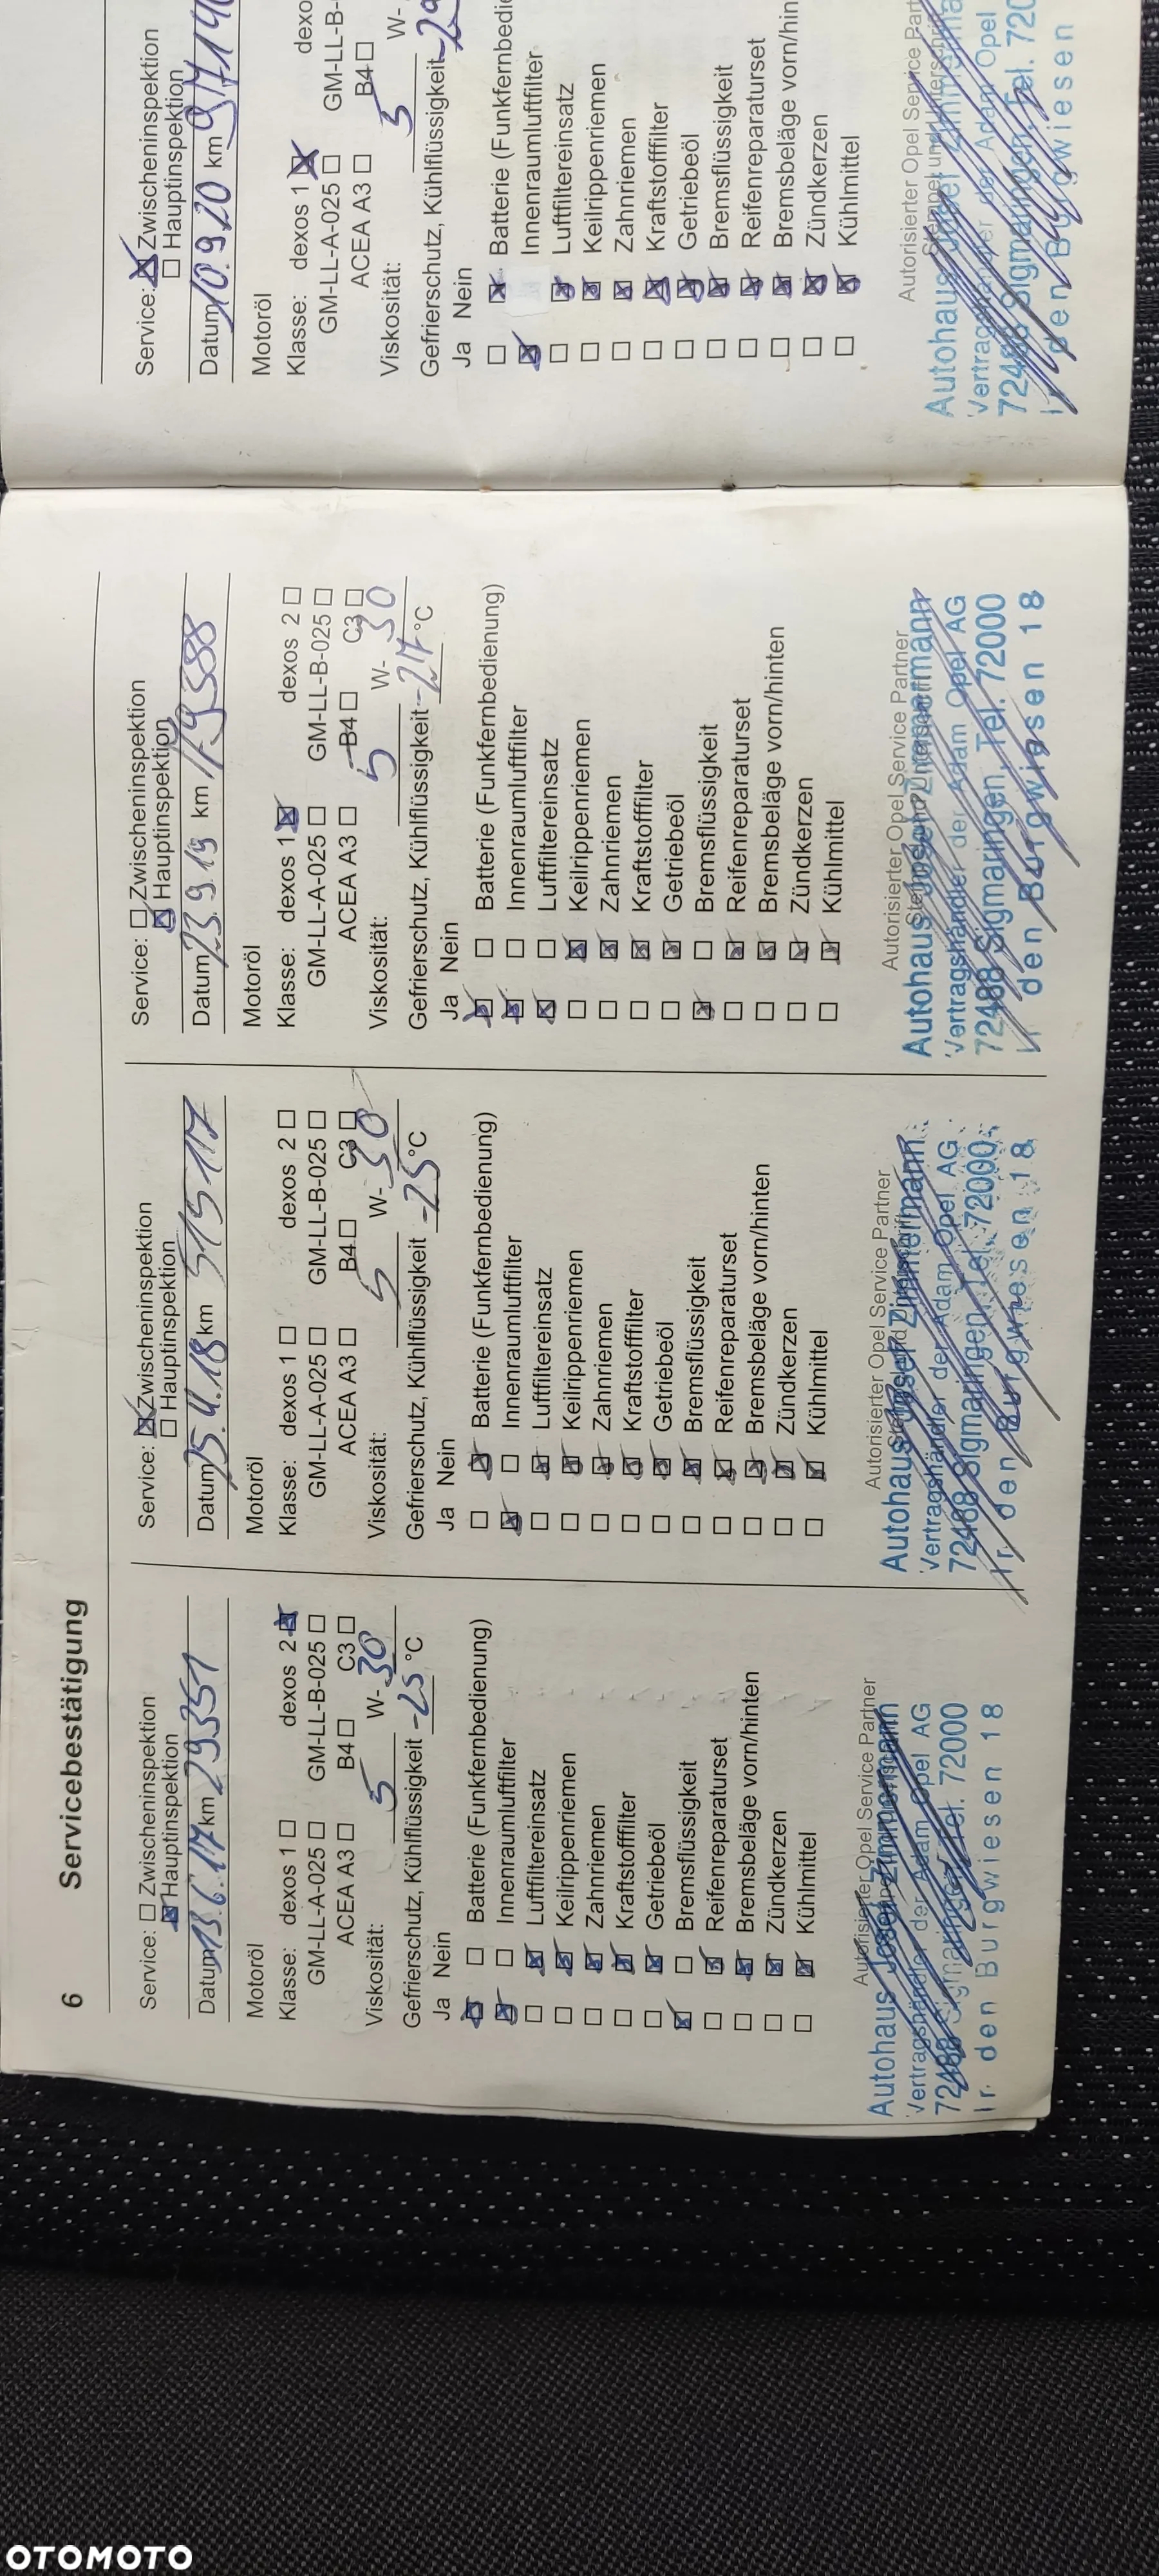 6 Servicebestätigung
Service: ☐ Zwischeninspektion
☒ Hauptinspektion
Datum 13.6.17 km 29351
Motoröl
Klasse: dexos 1 ☐ dexos 2 ☒
GM-LL-A-025 ☐ GM-LL-B-025 ☐
ACEA A3 ☐ B4 ☐ C3 ☐
Viskosität: 5 W- 30
Gefrierschutz, Kühlflüssigkeit -25 °C
Ja Nein
☒ ☐ Batterie (Funkfernbedienung)
☒ ☐ Innenraumluftfilter
☐ ☒ Luftfiltereinsatz
☐ ☒ Keilrippenriemen
☐ ☒ Zahnriemen
☐ ☒ Kraftstofffilter
☐ ☒ Getriebeöl
☒ ☐ Bremsflüssigkeit
☐ ☒ Reifenreparaturset
☐ ☒ Bremsbeläge vorn/hinten
☐ ☒ Zündkerzen
☐ ☒ Kühlmittel
Autorisierter Opel Service Partner
Autohaus Josef Zimmermann
Vertragshändler der Adam Opel AG
72488 Sigmaringen, Tel. 72000
den Burgwiesen 18
Service: ☒ Zwischeninspektion
☐ Hauptinspektion
Datum km
Motoröl
Klasse: dexos 1 ☐ dexos 2 ☐
GM-LL-A-025 ☐ GM-LL-B-025 ☐
ACEA A3 ☐ B4 ☐ C3 ☐
Viskosität: 5 W- 30
Gefrierschutz, Kühlflüssigkeit -25 °C
Ja Nein
☐ ☒ Batterie (Funkfernbedienung)
☒ ☐ Innenraumluftfilter
☐ ☒ Luftfiltereinsatz
☐ ☒ Keilrippenriemen
☐ ☒ Zahnriemen
☐ ☒ Kraftstofffilter
☐ ☒ Getriebeöl
☐ ☒ Bremsflüssigkeit
☐ ☒ Reifenreparaturset
☐ ☒ Bremsbeläge vorn/hinten
☐ ☒ Zündkerzen
☐ ☒ Kühlmittel
Autorisierter Opel Service Partner
Autohaus Josef Zimmermann
Vertragshändler der Adam Opel AG
72488 Sigmaringen, Tel. 72000
den Burgwiesen 18
Service: ☐ Zwischeninspektion
☒ Hauptinspektion
Datum 23.9.19 km
Motoröl
Klasse: dexos 1 ☒ dexos 2 ☐
GM-LL-A-025 ☐ GM-LL-B-025 ☐
ACEA A3 ☐ B4 ☐ C3 ☐
Viskosität: 5 W- 30
Gefrierschutz, Kühlflüssigkeit °C
Ja Nein
☒ ☐ Batterie (Funkfernbedienung)
☒ ☐ Innenraumluftfilter
☒ ☐ Luftfiltereinsatz
☐ ☒ Keilrippenriemen
☐ ☒ Zahnriemen
☐ ☒ Kraftstofffilter
☐ ☒ Getriebeöl
☒ ☐ Bremsflüssigkeit
☐ ☒ Reifenreparaturset
☐ ☒ Bremsbeläge vorn/hinten
☐ ☒ Zündkerzen
☐ ☒ Kühlmittel
Autorisierter Opel Service Partner
Autohaus Josef Zimmermann
Vertragshändler der Adam Opel AG
72488 Sigmaringen, Tel. 72000
den Burgwiesen 18
Service: ☒ Zwischeninspektion
☐ Hauptinspektion
Datum 10.9.20 km
Motoröl
Klasse: dexos 1 ☒ dexo
GM-LL-A-025 ☐ GM-LL-B-
ACEA A3 ☐ B4 ☐
Viskosität: 5 W-
Gefrierschutz, Kühlflüssigkeit
Ja Nein
☐ ☒ Batterie (Funkfernbedie
☒ Innenraumluftfilter
☐ ☒ Luftfiltereinsatz
☐ ☒ Keilrippenriemen
☐ ☒ Zahnriemen
☐ ☒ Kraftstofffilter
☐ ☒ Getriebeöl
☐ ☒ Bremsflüssigkeit
☐ ☒ Reifenreparaturset
☐ ☒ Bremsbeläge vorn/hin
☐ ☒ Zündkerzen
☐ ☒ Kühlmittel
Autorisierter Opel Service Part
Stempel und Unterschrift
Autohaus Josef Zimmerma
Vertragshändler der Adam Opel
72488 Sigmaringen, Tel. 720
den Burgwiesen
OTOMOTO